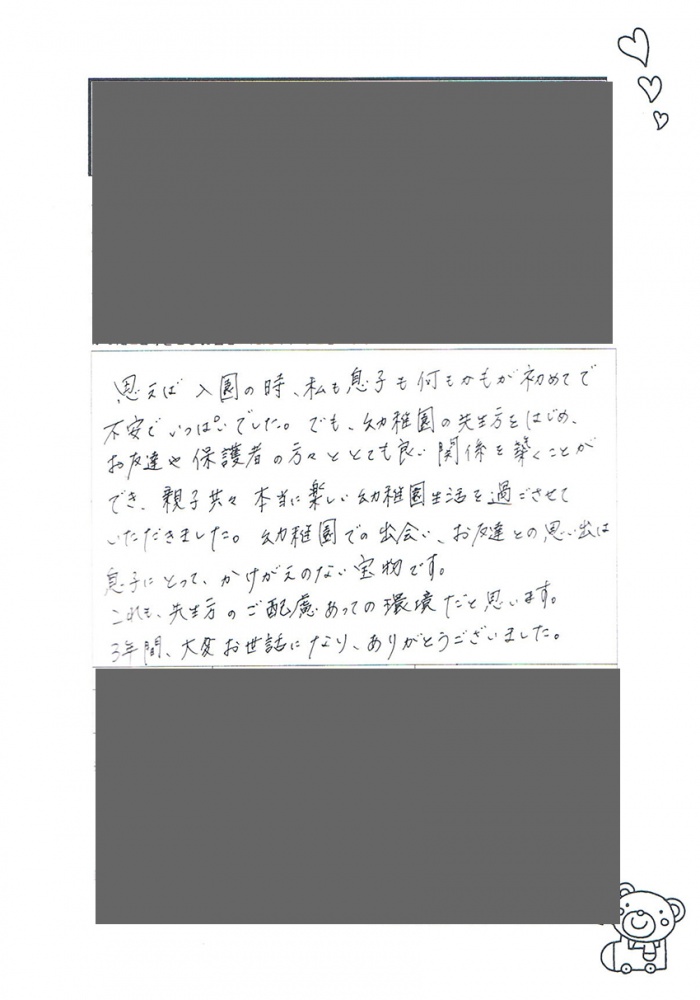 思えば 入園の時、私も息子も何もかもが初めてで
不安でいっぱいでした。でも、幼稚園の先生方をはじめ、
お友達や保護者の方々ととても良い関係を築くことが
でき、親子共々 本当に楽しい幼稚園生活を過ごさせて
いただきました。幼稚園での出会い、お友達との思い出は
息子にとって、かけがえのない宝物です。
これも、先生方のご配慮あっての環境だと思います。
3年間、大変お世話になり、ありがとうございました。